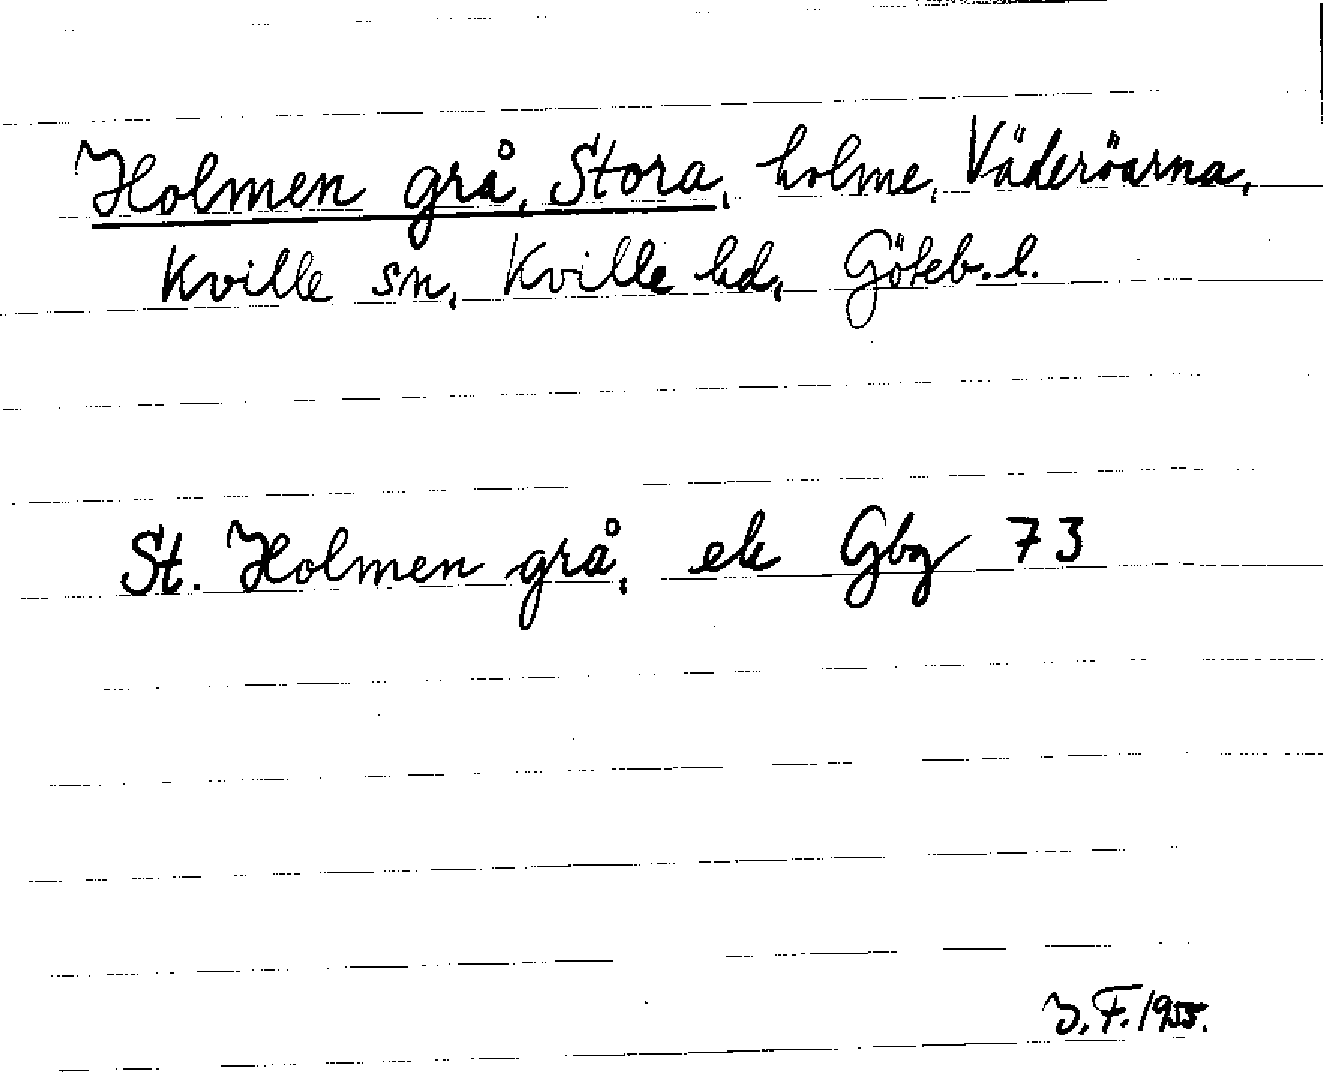 Holmen grå, Stora, holme, Väderöarna,
Kville sn, Kville hd, Göteb. l.
St. Holmen grå, ek Gbg 73
I. F. 1955.